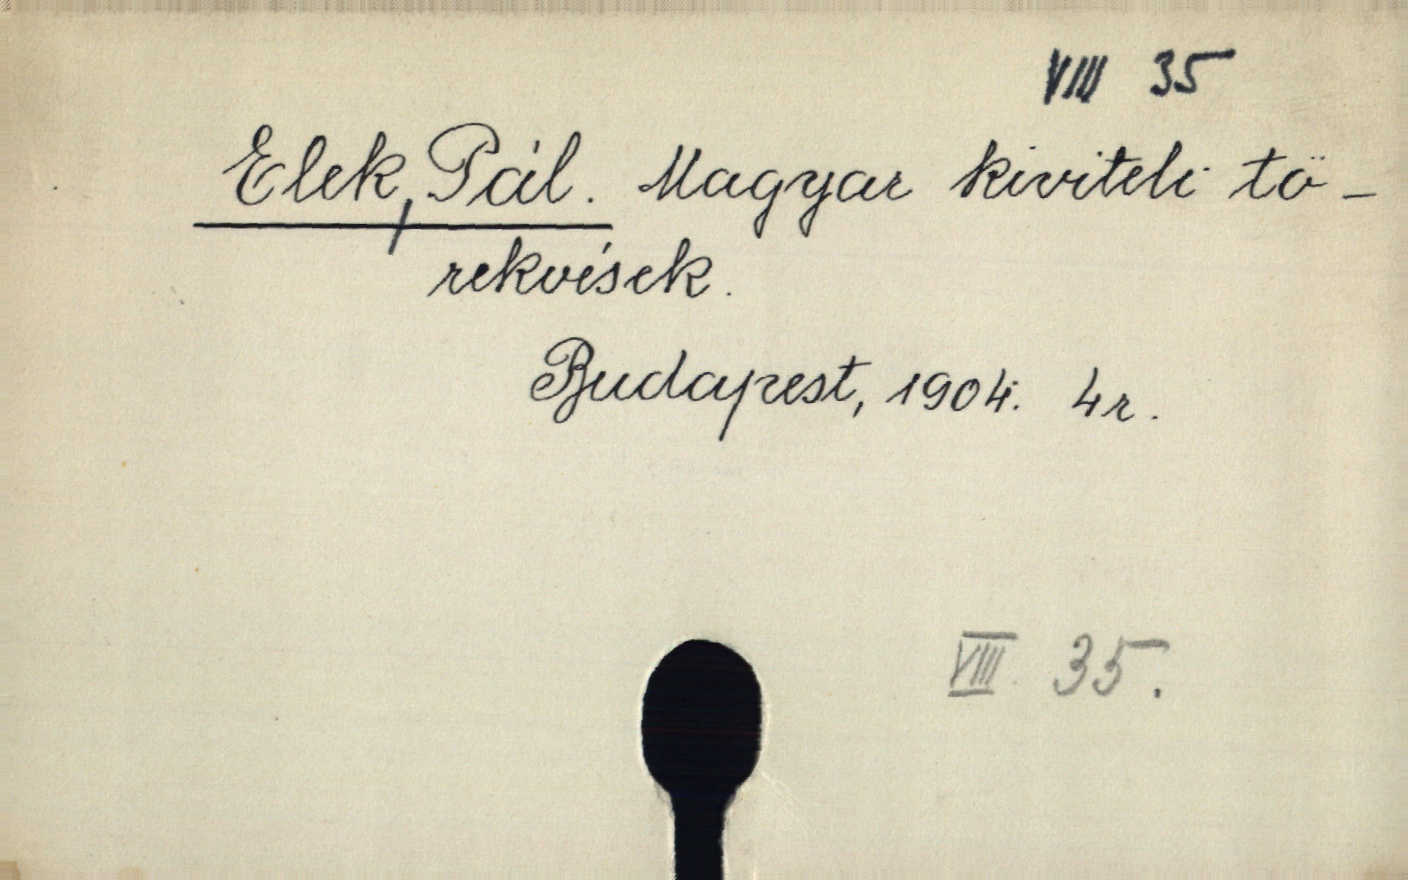 VIII 35
Elek, Pál. Magyar kiviteli tö-
rekvések.
Budapest, 1904. 4r.
VIII 35.